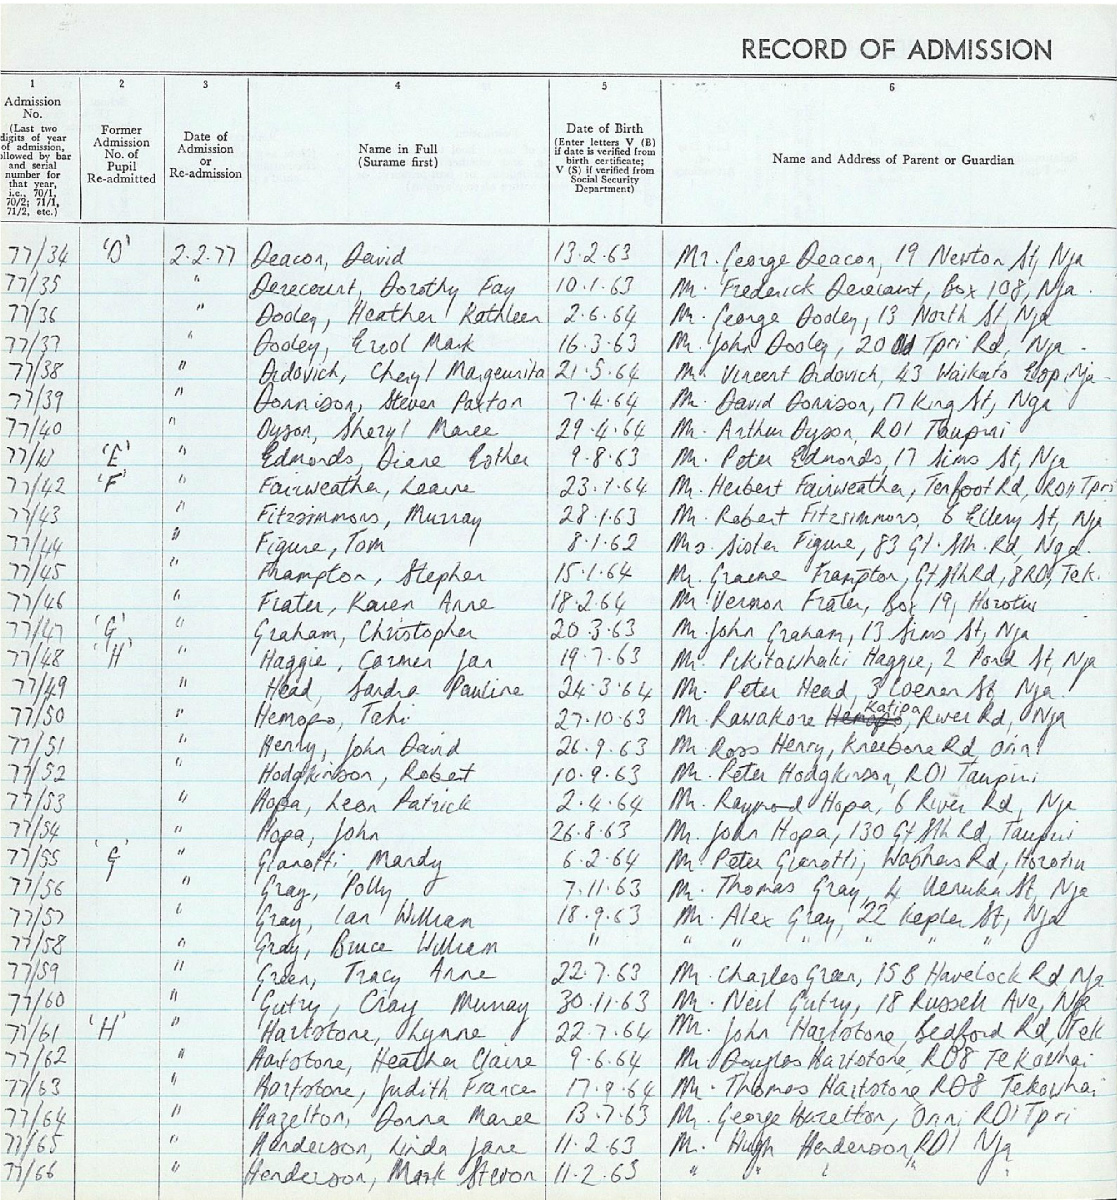 RECORD OF ADMISSION
1 2 3 4 5 6
Admission No. (Last two digits of year of admission, followed by bar and serial number for that year, i.e., 70/1, 70/2; 71/1, 71/2, etc.)
Former Admission No. of Pupil Re-admitted
Date of Admission or Re-admission
Name in Full (Surame first)
Date of Birth (Enter letters V (B) if date is verified from birth certificate; V (S) if verified from Social Security Department)
Name and Address of Parent or Guardian
77/34 'D' 2.2.77 Deacon, David 13.2.63 Mr. George Deacon, 19 Newton St, Nja
77/35 " Derecourt, Dorothy Fay 10.1.63 Mr. Frederick Derecourt, Box 108, Nja.
77/36 " Dooley, Heather Kathleen 2.6.64 Mr. George Dooley, 13 North St, Nja
77/37 " Dooley, Errol Mark 16.3.63 Mr. John Dooley, 20 Old Tpri Rd, Nja.
77/38 " Didovich, Cheryl Margeurita 21.5.64 Mr. Vincent Didovich, 43 Waikato Esp, Nja.
77/39 " Donnison, Steven Paxton 7.4.64 Mr. David Donnison, 17 King St, Nga
77/40 " Dyson, Sheryl Maree 29.4.64 Mr. Arthur Dyson, RD1 Taupiri
77/41 'E' " Edmonds, Diane Esther 9.8.63 Mr. Peter Edmonds, 17 Sims St, Nja
77/42 'F' " Fairweather, Leanne 23.1.64 Mr. Herbert Fairweather, Tenfoot Rd, RD1 Tpri
77/43 " Fitzsimmons, Murray 28.1.63 Mr. Robert Fitzsimmons, 6 Ellery St, Nja
77/44 " Figure, Tom 8.1.62 Mrs. Sister Figure, 83 Gt. Sth. Rd, Nga.
77/45 " Frampton, Stephen 15.1.64 Mr. Graeme Frampton, Gt Sth Rd, 8RD, Tek.
77/46 " Frater, Karen Anne 18.2.64 Mr. Vernon Frater, Box 19, Horotiu
77/47 'G' " Graham, Christopher 20.3.63 Mr. John Graham, 13 Sims St, Nja
77/48 'H' " Haggie, Carmen Jan 19.7.63 Mr. Pikitawhaki Haggie, 2 Pond St, Nja
77/49 " Head, Sandra Pauline 24.3.64 Mr. Peter Head, 3 Coenen St, Nja.
77/50 " Hemopo, Tahi 27.10.63 Mr. Rawakore Hemopo Katipa, River Rd, Nja
77/51 " Henry, John David 26.9.63 Mr. Ross Henry, Kneebone Rd Orini
77/52 " Hodgkinson, Robert 10.9.63 Mr. Peter Hodgkinson, RD1 Taupiri
77/53 " Hopa, Leon Patrick 2.4.64 Mr. Raymond Hopa, 6 River Rd, Nja
77/54 " Hopa, John 26.8.63 Mr. John Hopa, 130 Gt Sth Rd, Taupiri
77/55 'G' " Gianotti, Mandy 6.2.64 Mr. Peter Gianotti, Washers Rd, Horotiu
77/56 " Gray, Polly 7.11.63 Mr. Thomas Gray, 4 Uenuku St, Nja
77/57 " Gray, Ian William 18.9.63 Mr. Alex Gray, 22 Kepler St, Nja
77/58 " Gray, Bruce William " " " " " " "
77/59 " Green, Tracy Anne 22.7.63 Mr. Charles Green, 15B Havelock Rd Nja
77/60 " Gutry, Clay Murray 30.11.63 Mr. Neil Gutry, 18 Russell Ave, Nja
77/61 'H' " Hartstone, Lynne 22.7.64 Mr. John Hartstone, Bedford Rd, Tek
77/62 " Hartstone, Heather Claire 9.6.64 Mr. Douglas Hartstone RD8 Tekowhai
77/63 " Hartstone, Judith Frances 17.9.64 Mr. Thomas Hartstone RD8 Tekowhai
77/64 " Hazelton, Donna Maree 13.7.63 Mr. George Hazelton, Orini RD1 Tpri
77/65 " Henderson, Linda Jane 11.2.63 Mr. Hugh Henderson, RD1 Nja
77/66 " Henderson, Mark Steven 11.2.63 " " " " "